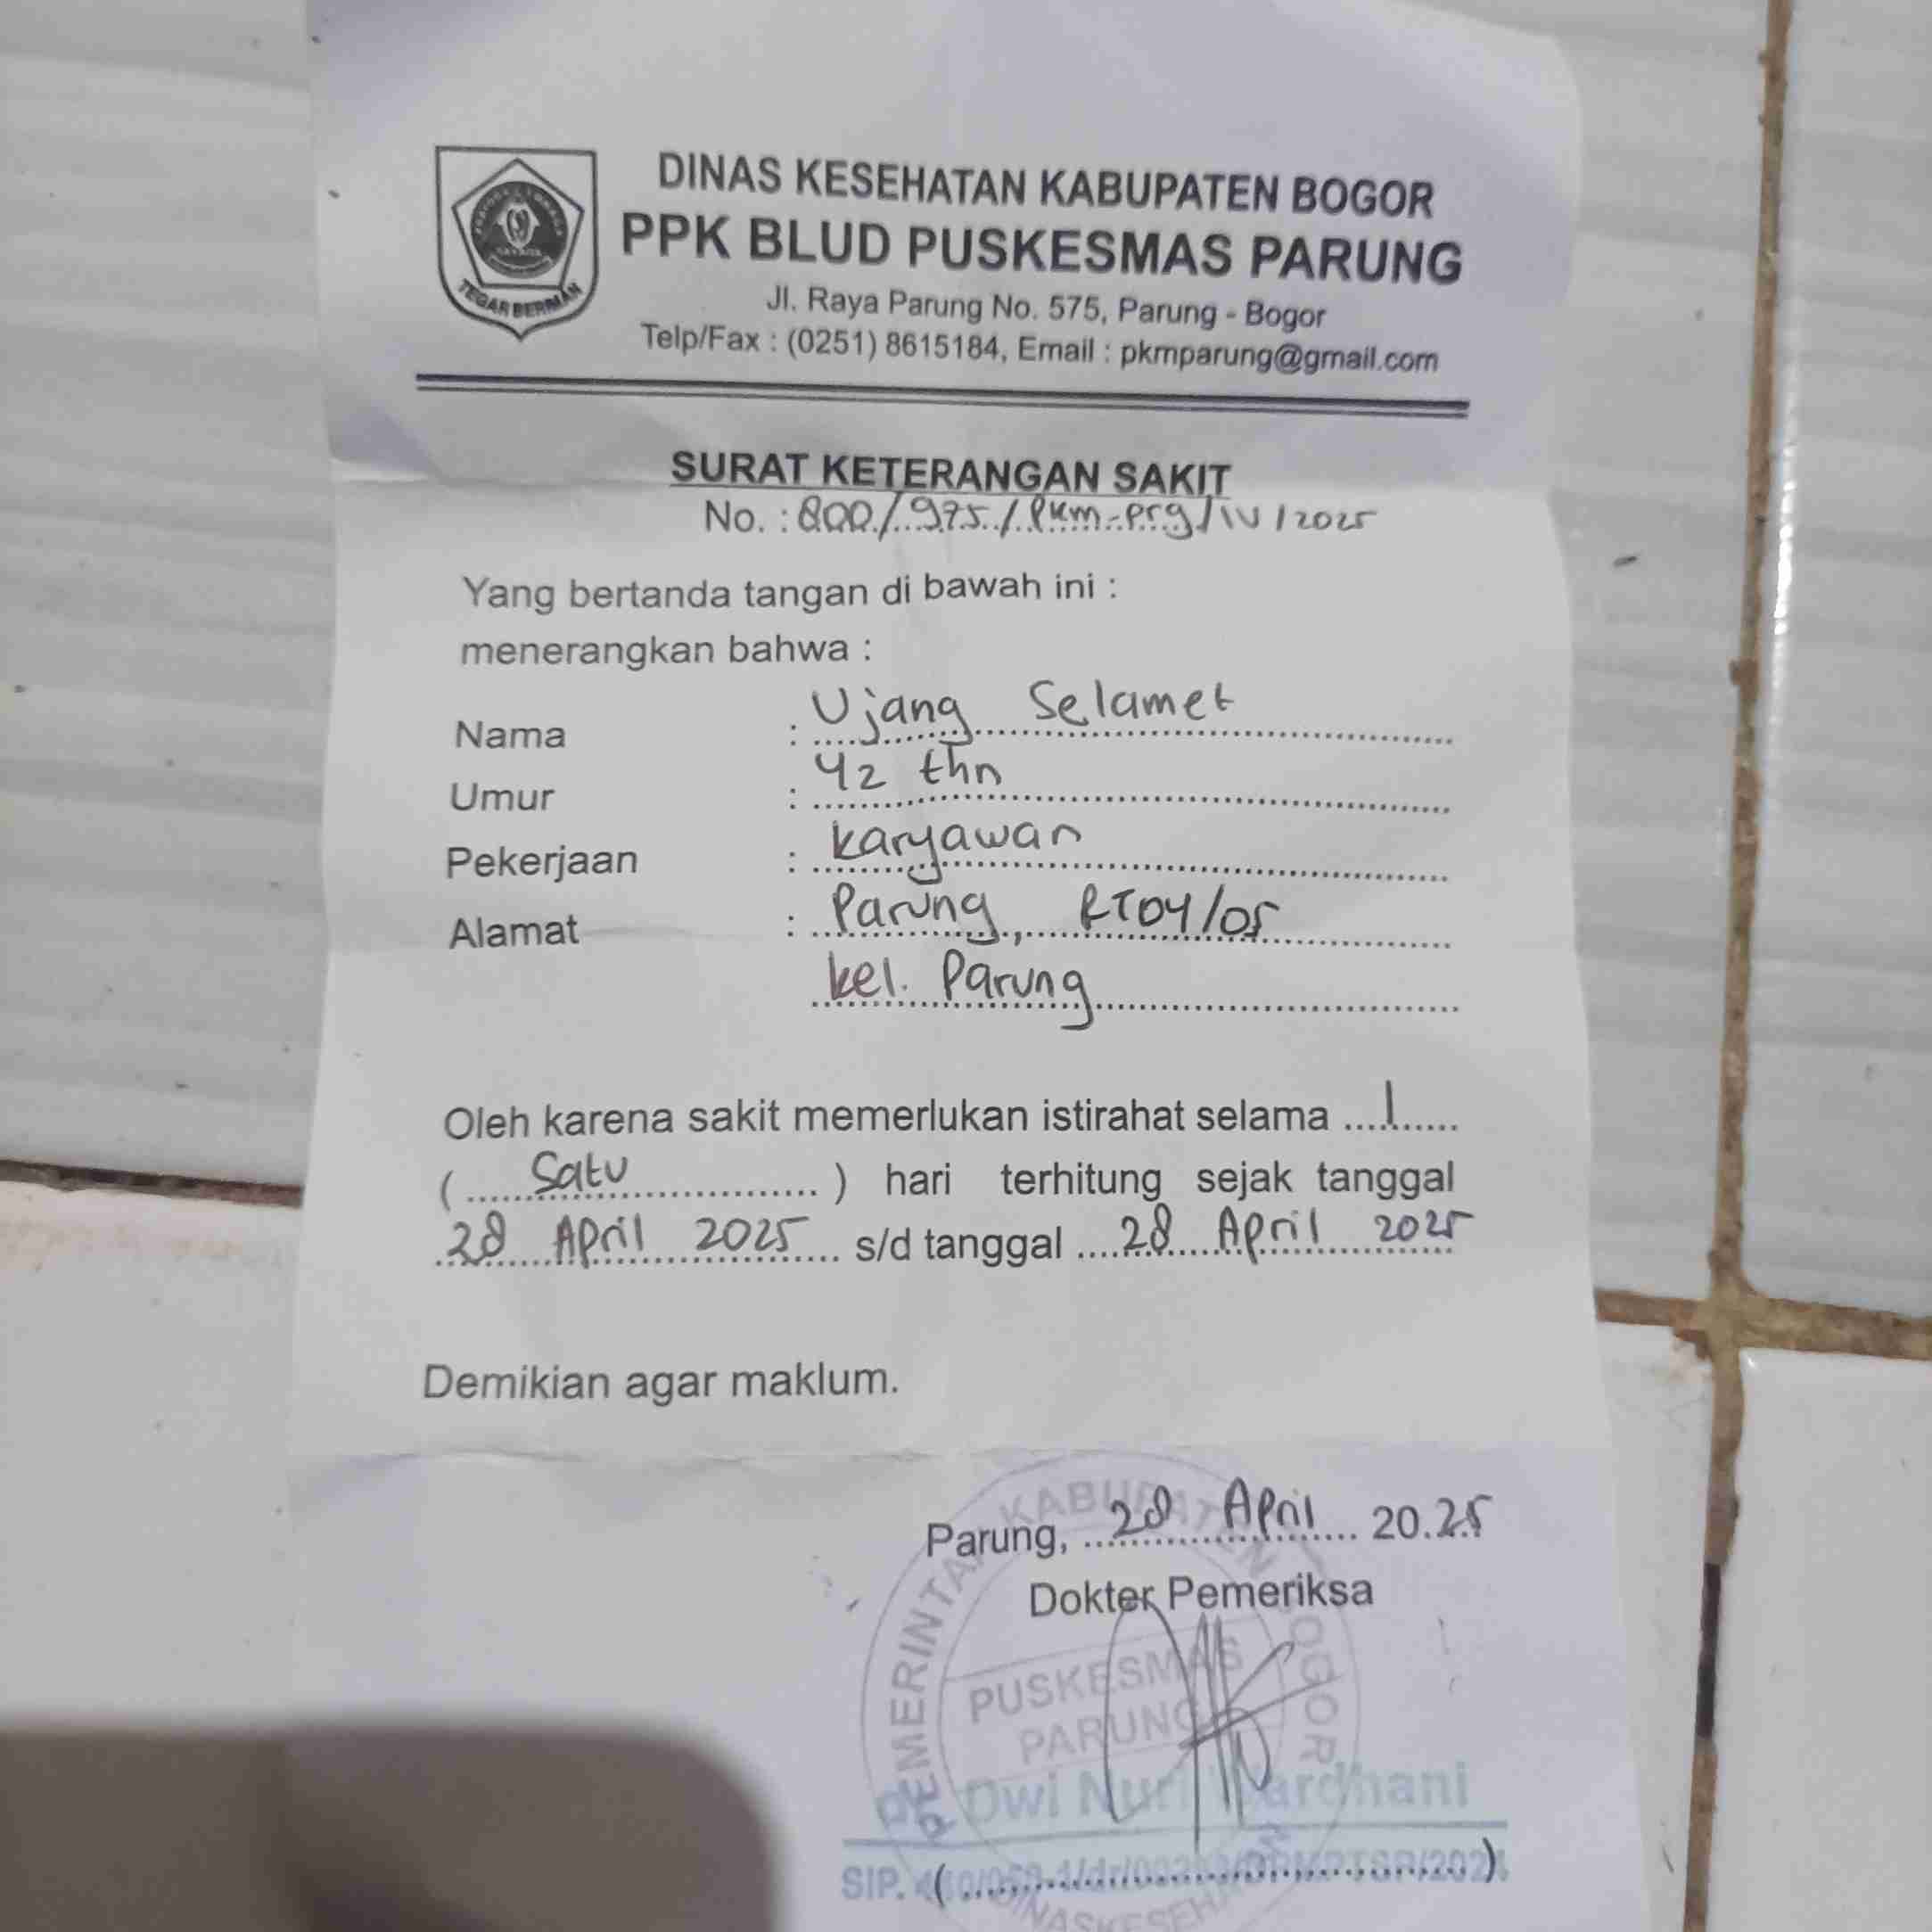 DINAS KESEHATAN KABUPATEN BOGOR
PPK BLUD PUSKESMAS PARUNG
Jl. Raya Parung No. 575, Parung - Bogor
Telp/Fax : (0251) 8615184, Email : pkmparung@gmail.com
TEGAR BERIMAN
SURAT KETERANGAN SAKIT
No. : 800/975/Pkm-Prg/IV/2025
Yang bertanda tangan di bawah ini :
menerangkan bahwa :
Nama : Ujang Selamet
Umur : 42 thn
Pekerjaan : karyawan
Alamat : Parung, RT04/05
kel. Parung
Oleh karena sakit memerlukan istirahat selama 1
( Satu ) hari terhitung sejak tanggal
28 April 2025 s/d tanggal 28 April 2025
Demikian agar maklum.
Parung, 28 April 2025
Dokter Pemeriksa
PEMERINTAH KABUPATEN BOGOR
PUSKESMAS
PARUNG
Dwi Nuri Wardhani
SIP.